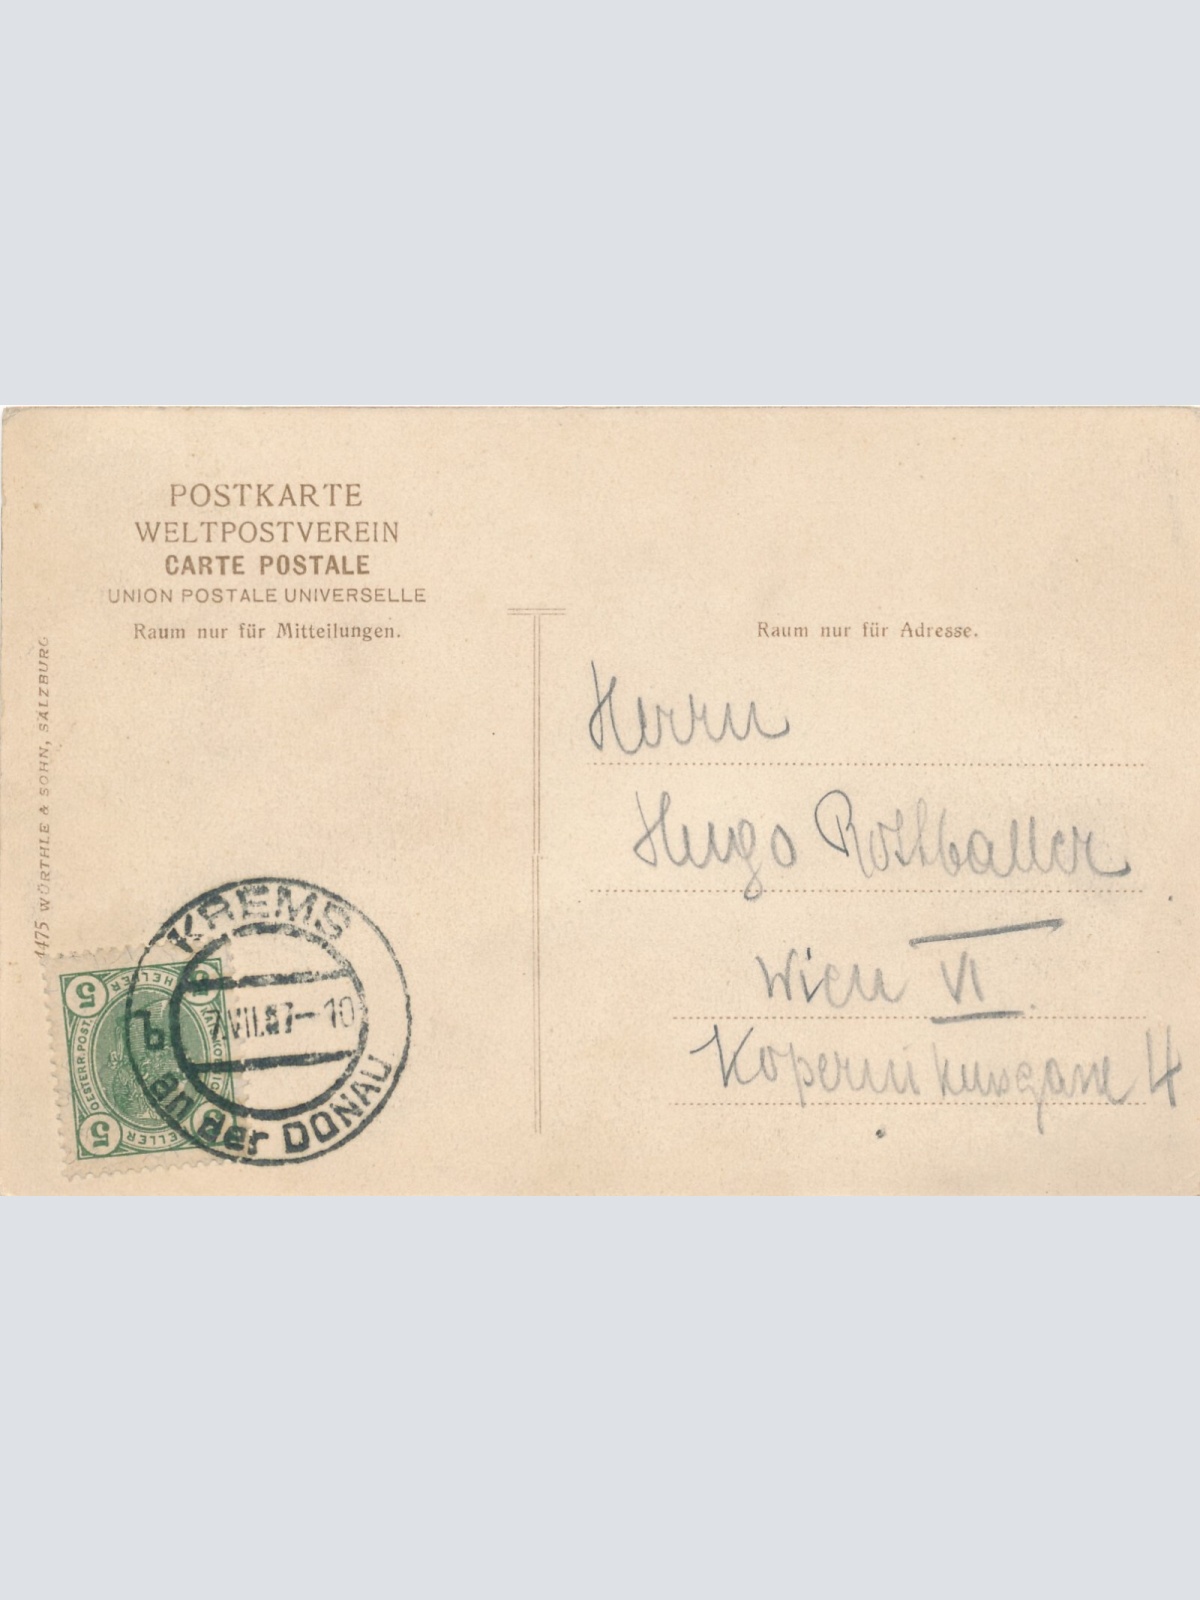 POSTKARTE
WELTPOSTVEREIN
CARTE POSTALE
UNION POSTALE UNIVERSELLE
Raum nur für Mitteilungen.
Raum nur für Adresse.
WÜRTHLE & SOHN, SALZBURG
Herrn
Hugo
Wien VI
Kopernikusgasse 4
KREMS
7.VII.07-10
b
an der DONAU
5 HELLER 5
OESTERR. POST.
5 HELLER 5